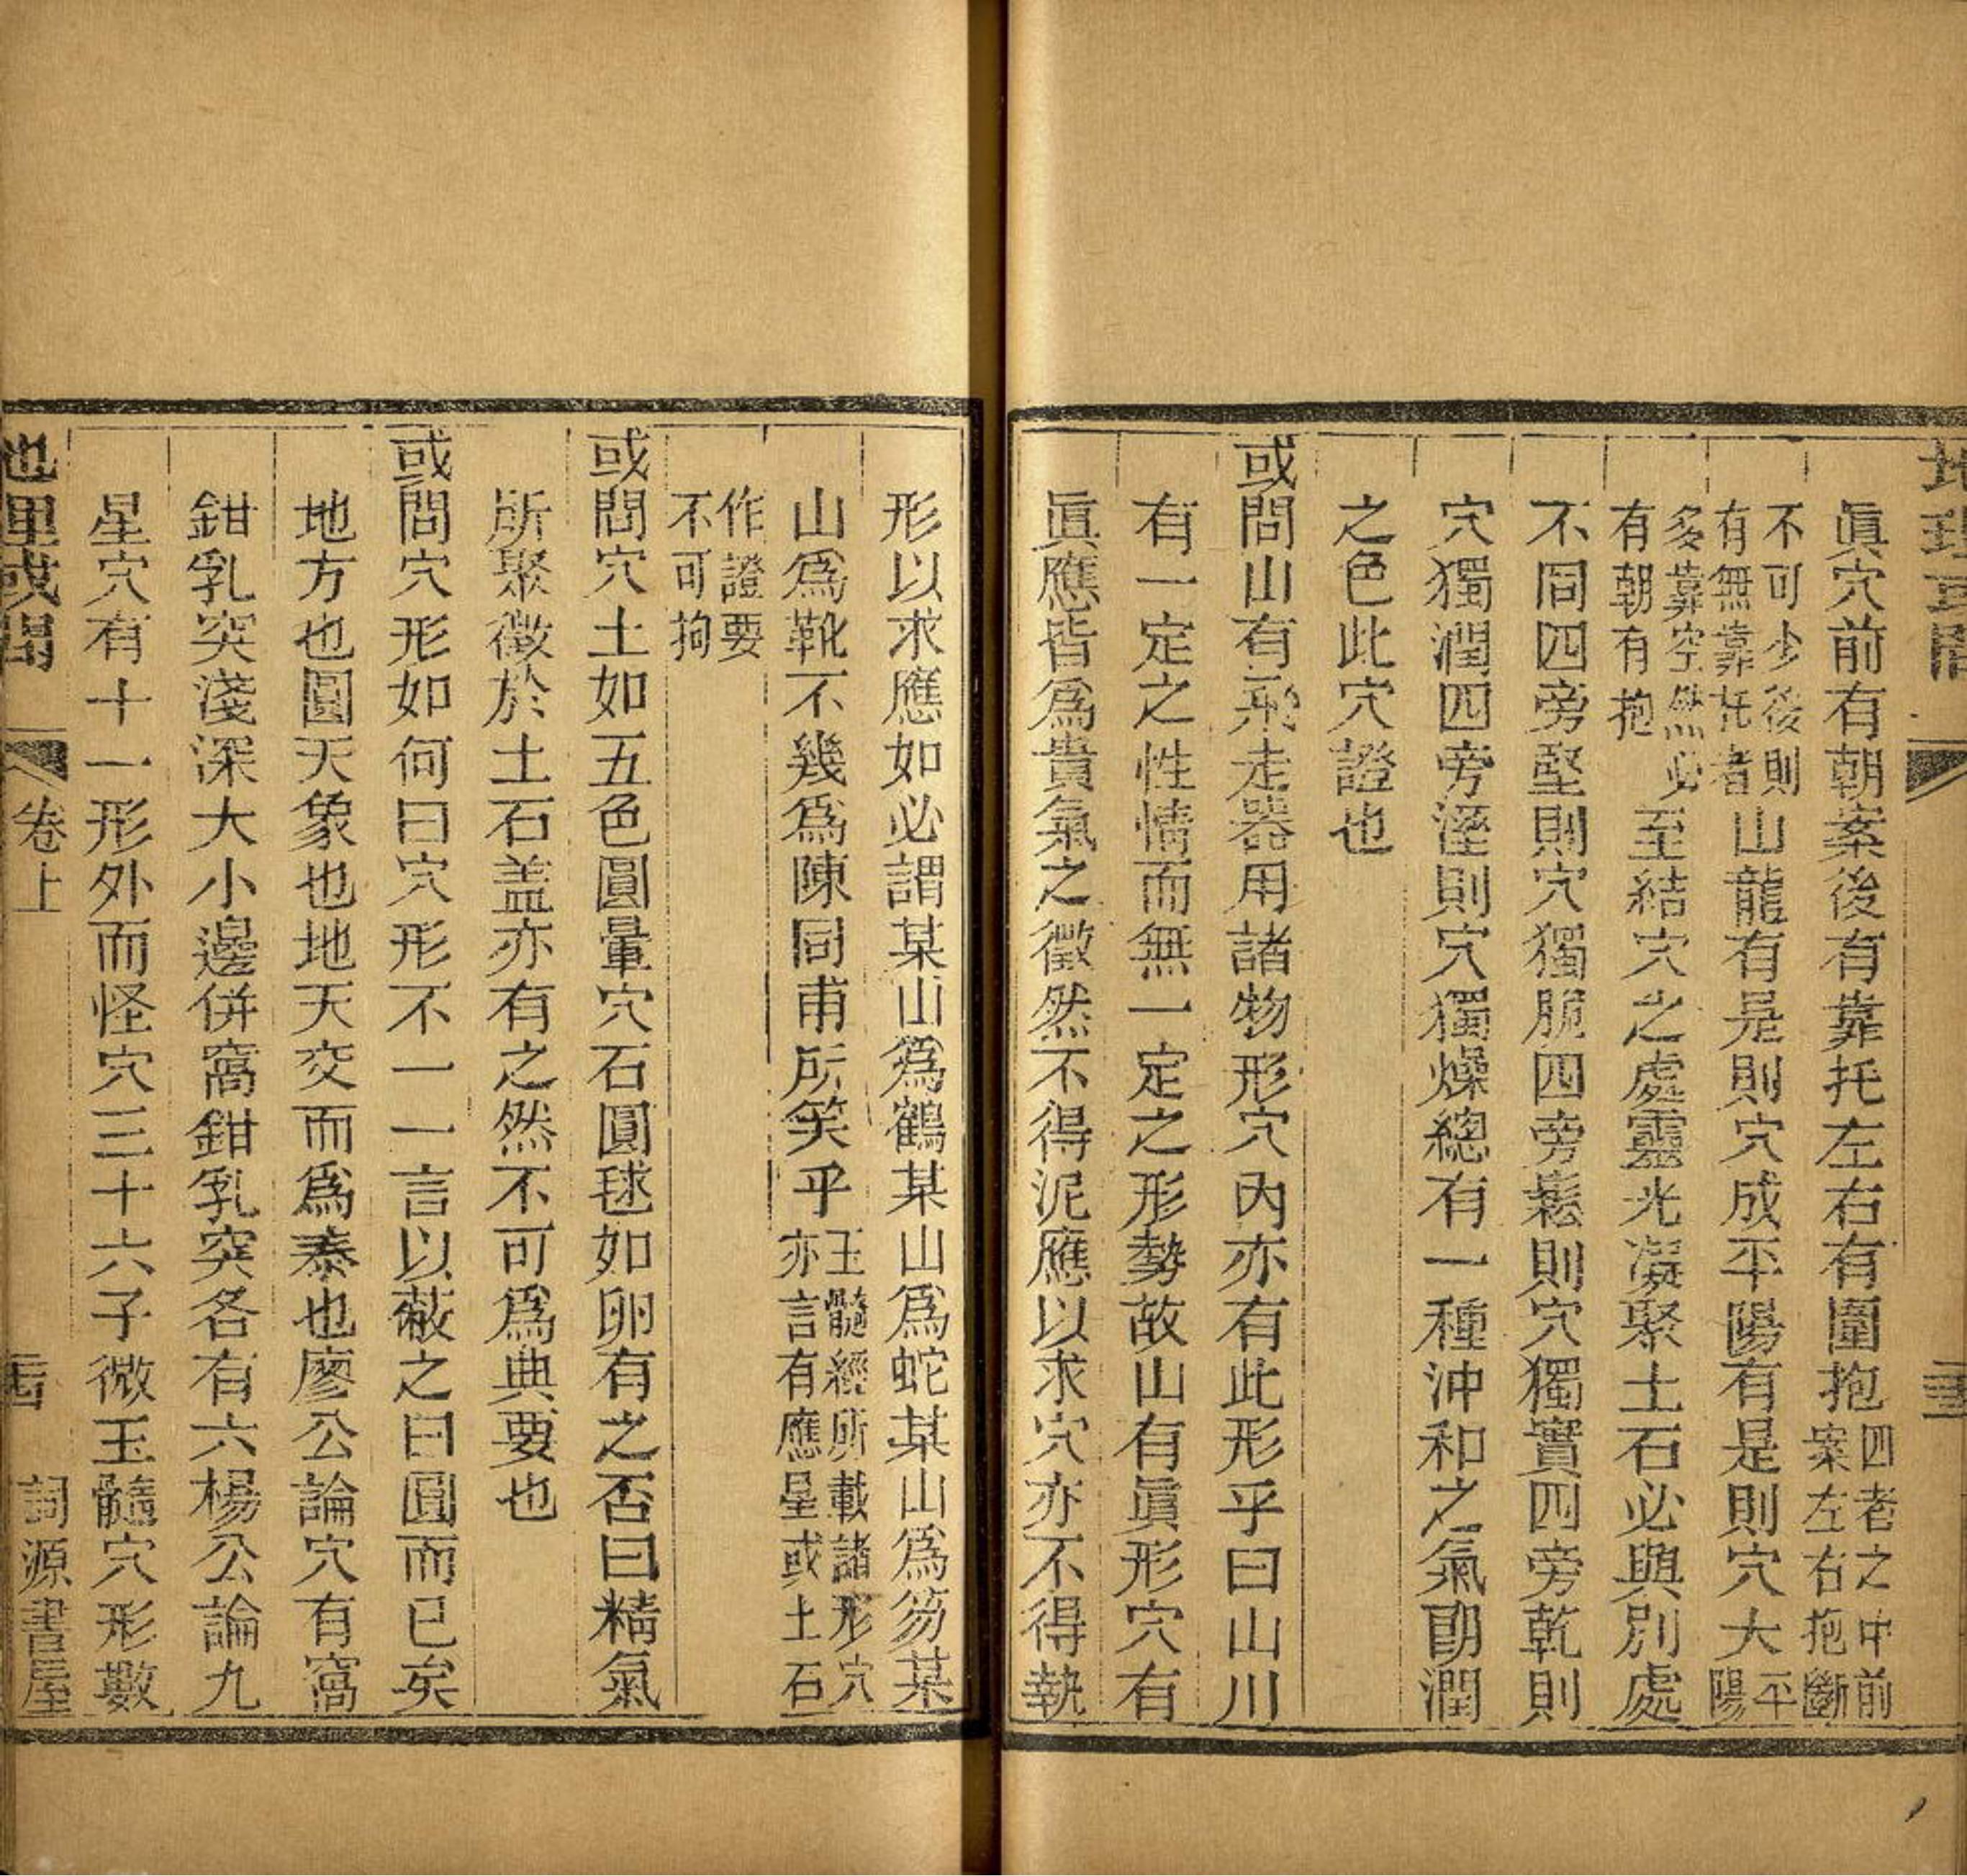 地理或問
眞穴前有朝案後有靠托左右有圍抱四者之中前案左右抱斷
不可少後則有無靠托者山龍有是則穴成平陽有是則穴大平陽
多靠空然必有朝有抱至結穴之處靈光凝聚土石必與別處
不同四旁堅則穴獨脆四旁鬆則穴獨實四旁乾則
穴獨潤四旁溼則穴獨燥總有一種沖和之氣明潤
之色此穴證也
或問山有飛走器用諸物形穴內亦有此形乎曰山川
有一定之性情而無一定之形勢故山有眞形穴有
眞應皆爲貴氣之徵然不得泥應以求穴亦不得執
形以求應如必謂某山爲鶴某山爲蛇某山爲笏某
山爲靴不幾爲陳同甫所笑乎玉髓經所載諸形穴亦言有應星或土石
作證要不可拘
或問穴土如五色圓暈穴石圓毬如卵有之否曰精氣
所聚徵於土石盖亦有之然不可爲典要也
或問穴形如何曰穴形不一一言以蔽之曰圓而已矣
地方也圓天象也地天交而爲泰也廖公論穴有窩
鉗乳突淺深大小邊併窩鉗乳突各有六楊公論九
星穴有十一形外而怪穴三十六子微玉髓穴形數
地理或問 卷上 詞源書屋